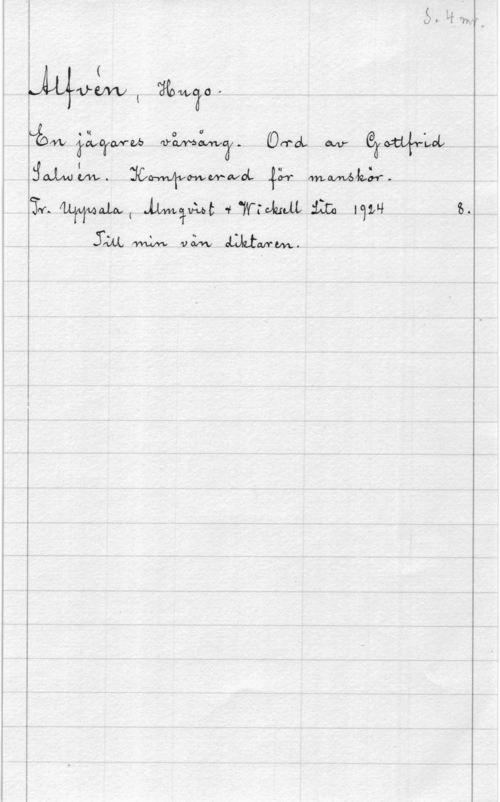 S. 4 mr.
Alfvén, Hugo.
En jägares vårsång. Ord av Gottfrid
Salwén. Komponerad för manskör.
Tr. Uppsala, Almqvist & Wicksell Lito 1924 8.
Till min vän diktaren.